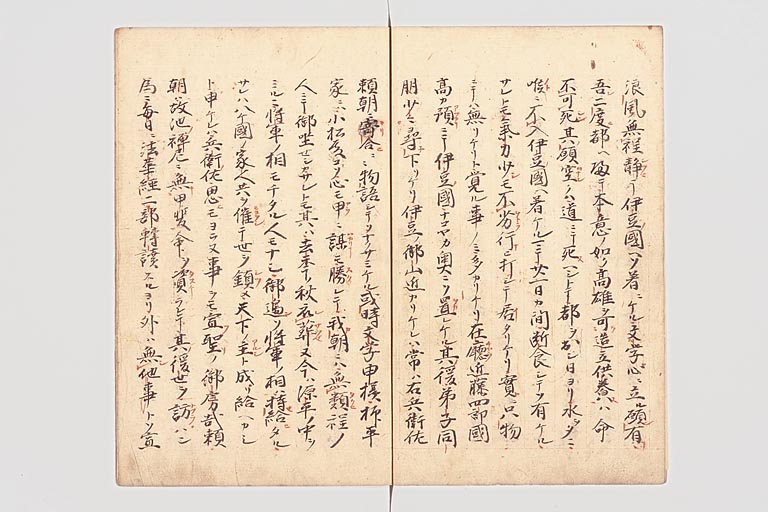 浪風無程静テ伊豆國ヘソ着ニケル文学心ニ立ル願有
吾二度都ヘ帰テ本意ノ如ク高雄ヲ可造立供養ハ命
不可死其願空ノハ道ニテ死ヘシトテ都ヲ出シ日ヨリ水ヲタニ
喉ニ不入伊豆國ヘ着ケルニ廿一日カ間断食シテソ有ケル
サレトモ氣力少モ不劣行ヒ打シテ居タリケリ實只物
ニテハ無リケリト覚ル事ノミ多カリケリ在廳近藤四郎國
高カ預ニテ伊豆國ナコヤカ奥ニソ置レケル其後弟子同
朋少々尋下リケリ伊豆ノ御山近カリケレハ常ハ右兵衛佐
頼朝寄合ニ物語シテソナサミケル或時文学申様抑平
家ニハ小松殿ソ心モ甲ニ謀モ勝レテ我朝ニハ無類程ノ
人ニテ御坐セシカサレトモ其ハ去年ノ秋被薨又今ハ源平ノ中ヲ
ミルニ将軍ノ相モチタル人モナシ御邊ソ将軍ノ相ハ持給タル
サレハ八ケ國ノ家人共ヲ催テ世ヲ鎮メ天下ノ主ト成リ給ヘカシ
ト申ケレハ兵衛佐思モヨラヌ事ヲモ宣聖ノ御房哉頼
朝故池禅尼ニ無甲斐命ヲ資ラレテ其後世ヲ訪ハン
為ニ毎日ニ法華経二部轉讀スルヨリ外ハ無他事トソ宣